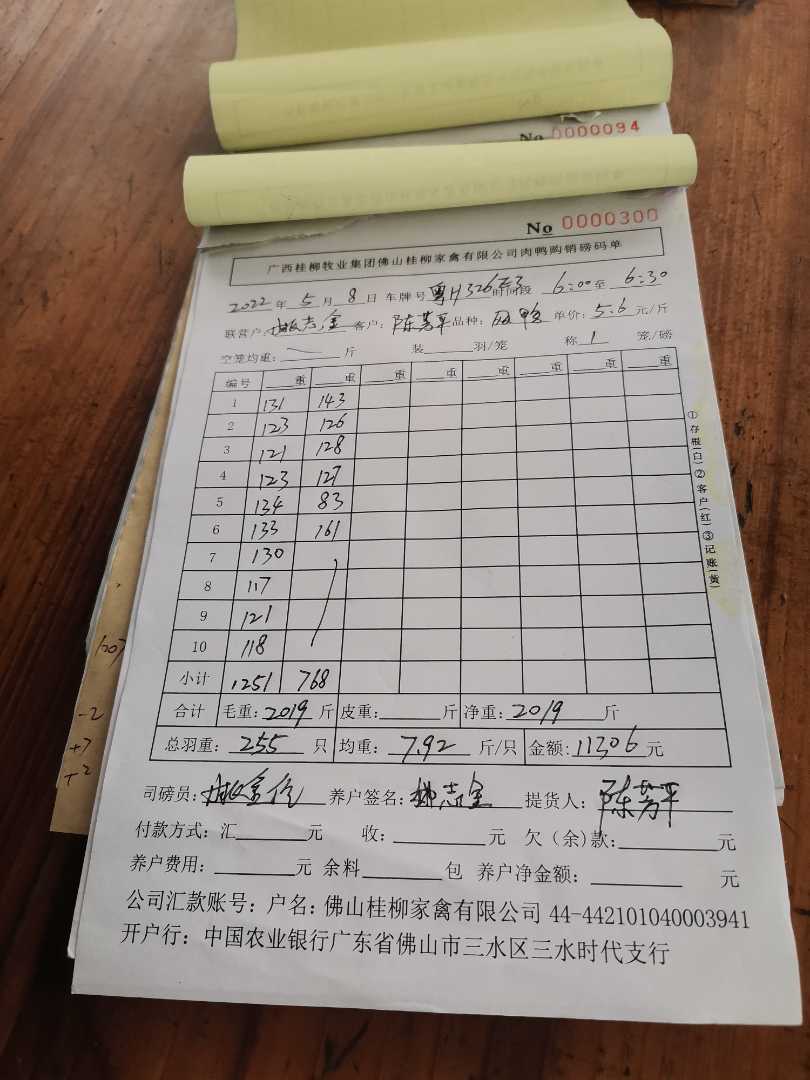 No 0000094
No 0000300
广西桂柳牧业集团佛山桂柳家禽有限公司肉鸭购销磅码单
2022年 5月 8日 车牌号 粤H326 时间段 6:00至 6:30
联营户: 志金 客户: 陈芳平 品种: 鸭 单价: 5.6 元/斤
空笼均重: 斤 装 羽/笼 称 1 笼/磅
编号 重 重 重 重 重 重 重 重
1 131 143
2 123 126
3 121 128
4 123 127
5 134 83
6 133 161
7 130
8 117
9 121
10 118
小计 1251 768
合计 毛重: 2019 斤 皮重: 斤 净重: 2019 斤
总羽重: 255 只 均重: 7.92 斤/只 金额: 11306 元
司磅员: 养户签名: 志金 提货人: 陈芳平
付款方式: 汇 元 收: 元 欠(余)款: 元
养户费用: 元 余料 包 养户净金额: 元
公司汇款账号: 户名: 佛山桂柳家禽有限公司 44-442101040003941
开户行: 中国农业银行广东省佛山市三水区三水时代支行
①存根(白)②客户(红)③记账(黄)
-2
+7
+2